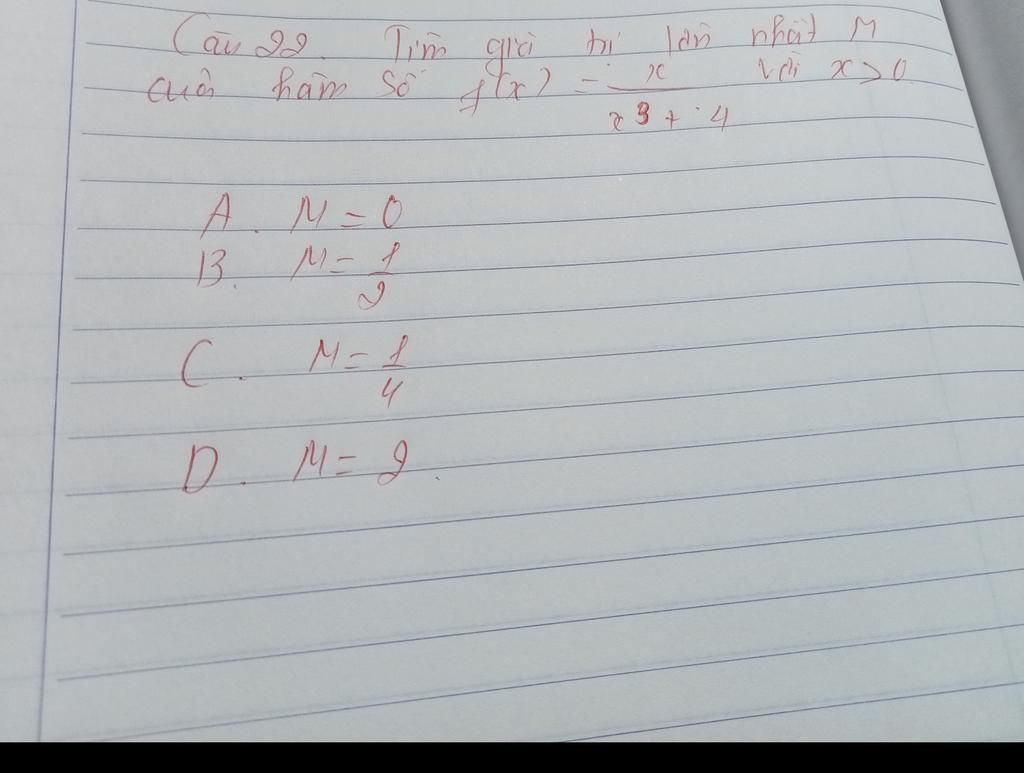 Câu 22. Tìm giá trị lớn nhất M
của hàm số f(x) = x / (x^3 + 4) với x > 0
A. M = 0
B. M = 1/2
C. M = 1/4
D. M = 2.